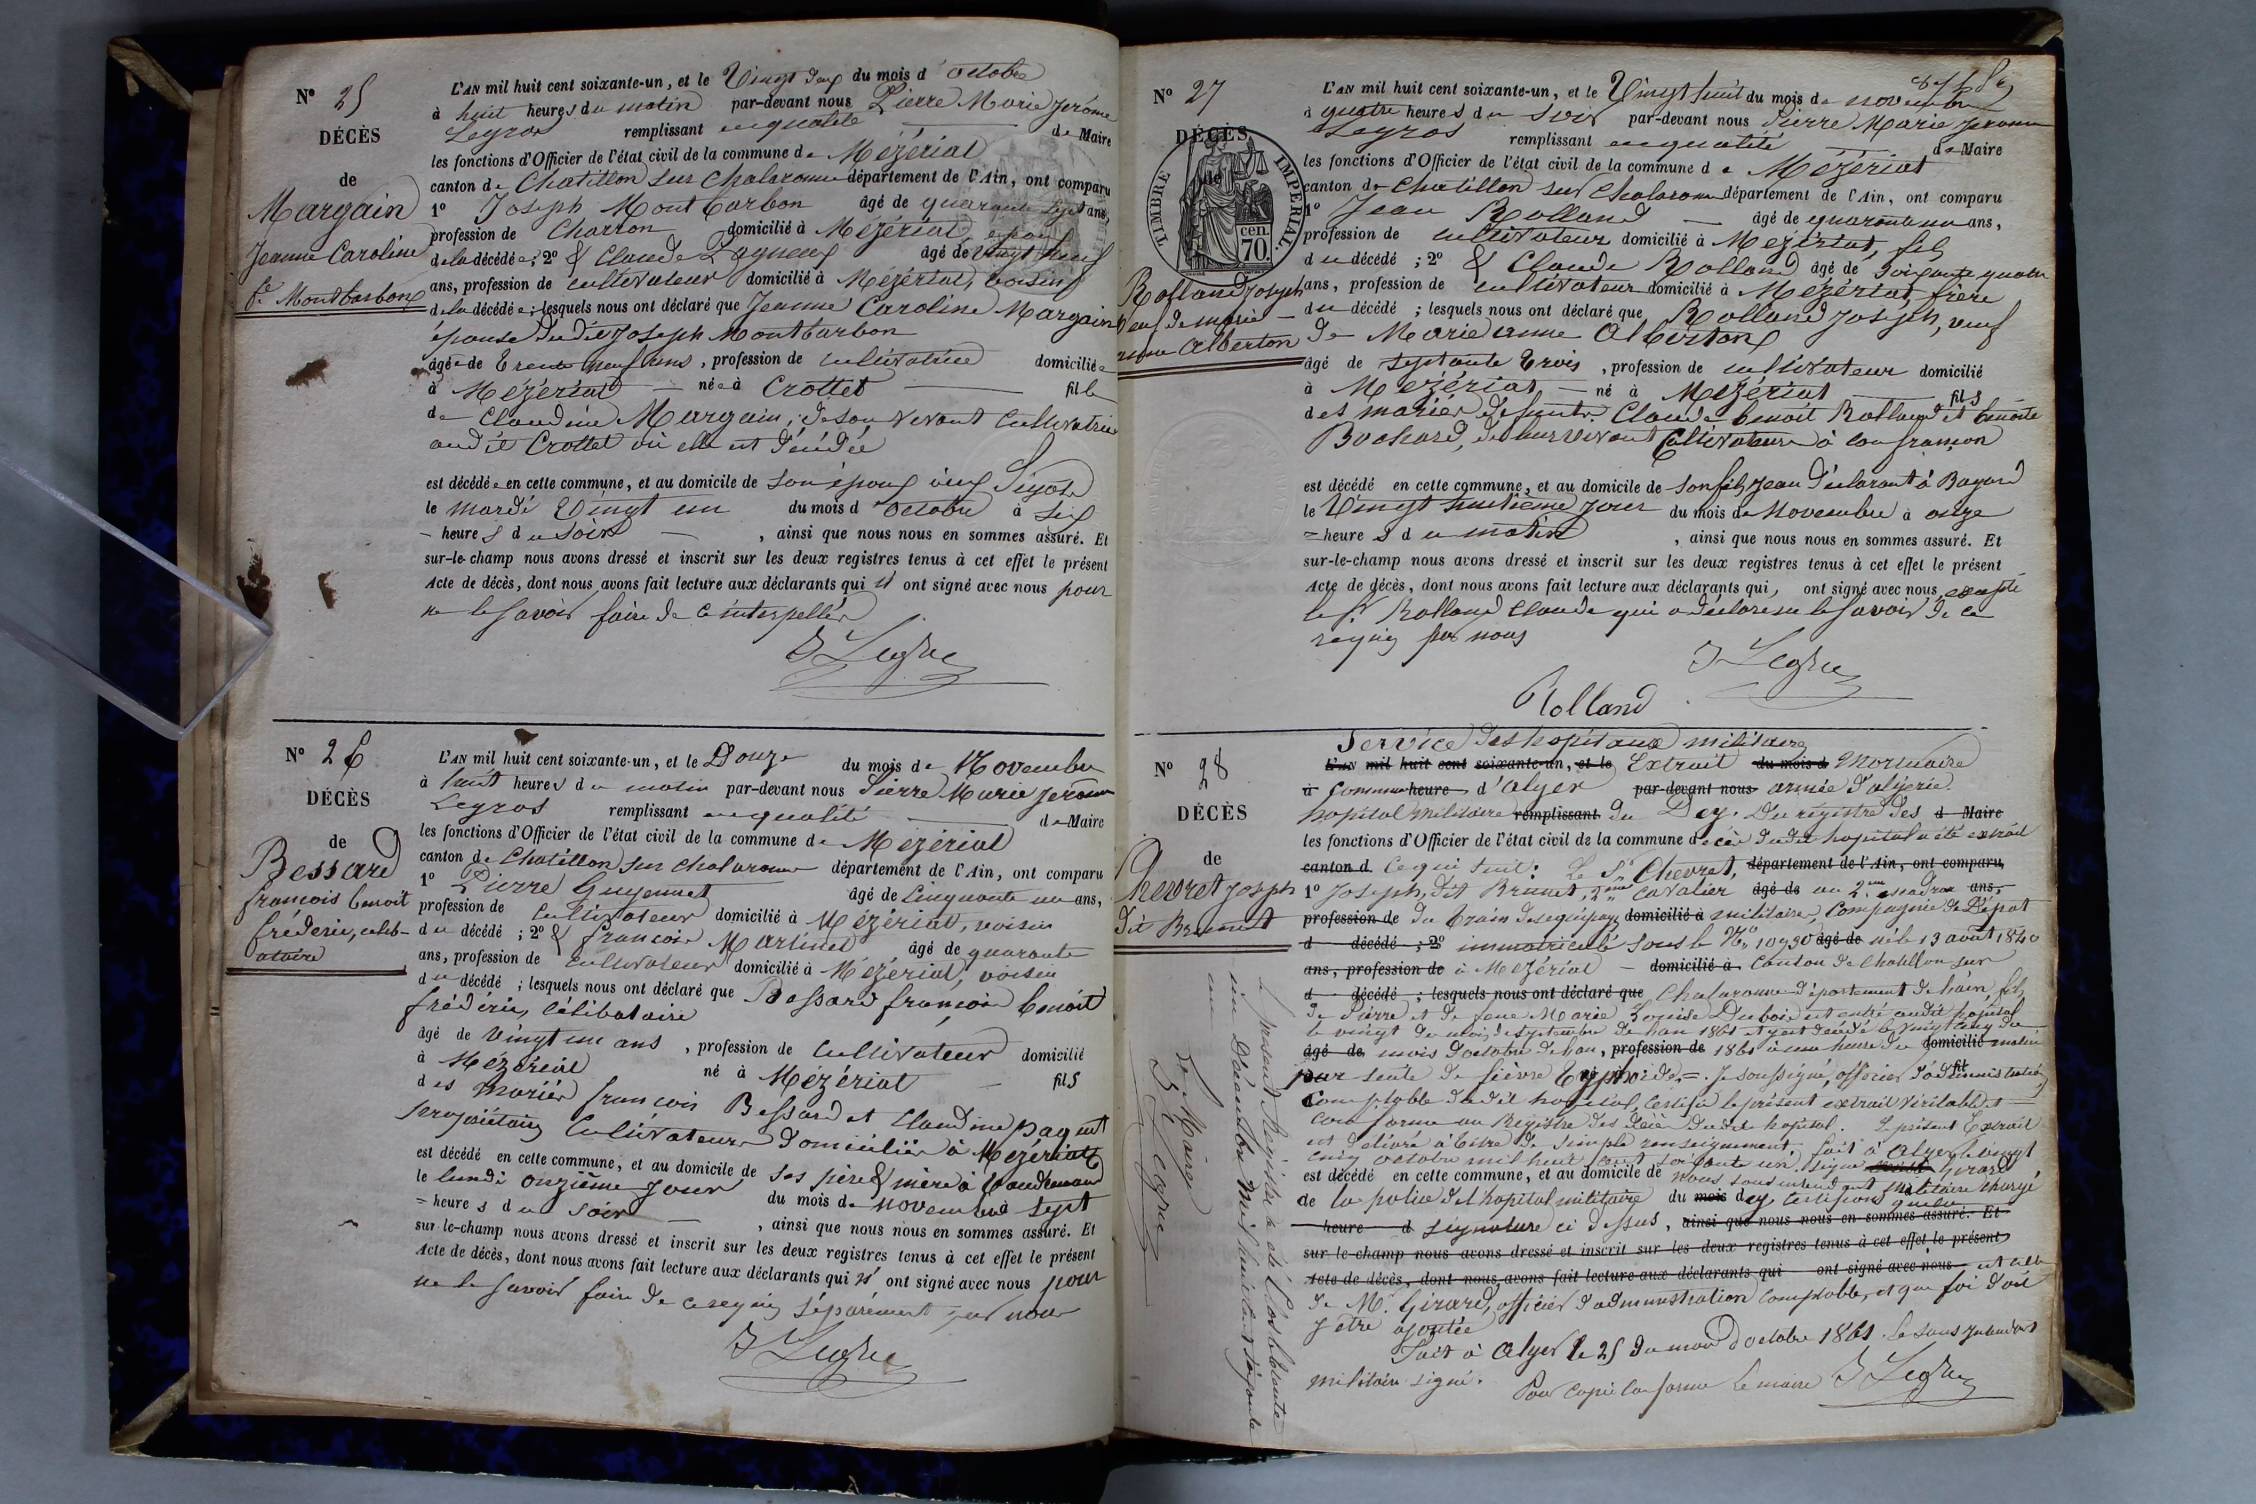 N° 25
DÉCÈS
de
Margain
Jeanne Caroline
fe Montbarbon
L'AN mil huit cent soixante-un, et le Vingt deux du mois d'octobre
à huit heures du matin par-devant nous Pierre Marie Jérome
Legros remplissant en qualité de Maire
les fonctions d'Officier de l'état civil de la commune de Mézériat
canton de Chatillon sur Chalaronne département de l'Ain, ont comparu
1° Joseph Montbarbon âgé de quarante sept ans,
profession de Charron domicilié à Mézériat époux
de la décédée; 2° & Claude âgé de vingt neuf
ans, profession de cultivateur domicilié à Mézériat, voisin
de la décédée; lesquels nous ont déclaré que Jeanne Caroline Margain
épouse dudit Joseph Montbarbon
âgée de trente neuf ans, profession de cultivatrice domiciliée
à Mézériat née à Crottet fille
de Claudine Margain, de son vivant cultivatrice
audit Crottet où elle est décédée
est décédée en cette commune, et au domicile de son époux
le mardi Vingt un du mois d'octobre à six
heures du soir, ainsi que nous nous en sommes assuré. Et
sur-le-champ nous avons dressé et inscrit sur les deux registres tenus à cet effet le présent
Acte de décès, dont nous avons fait lecture aux déclarants qui n' ont signé avec nous pour
ne le savoir faire de ce interpellés
J Legros
N° 26
DÉCÈS
de
Bessard
françois benoit
fréderic, célib-
ataire
L'AN mil huit cent soixante-un, et le Douze du mois de Novembre
à huit heures du matin par-devant nous Pierre Marie Jérome
Legros remplissant en qualité de Maire
les fonctions d'Officier de l'état civil de la commune de Mézériat
canton de Chatillon sur chalaronne département de l'Ain, ont comparu
1° Pierre Guyennet âgé de cinquante un ans,
profession de cultivateur domicilié à Mézériat, voisin
du décédé; 2° & françois Martinet âgé de quarante
ans, profession de cultivateur domicilié à Mézériat, voisin
du décédé; lesquels nous ont déclaré que Bessard françois benoit
fréderic, célibataire
âgé de vingt un ans, profession de cultivateur domicilié
à Mézériat né à Mézériat fils
des mariés françois Bessard et Claudine pagent
propriétaires cultivateurs domiciliés à Mézériat
est décédé en cette commune, et au domicile de ses père & mère à
le lundi onzième jour du mois de novembre à sept
heures du soir, ainsi que nous nous en sommes assuré. Et
sur-le-champ nous avons dressé et inscrit sur les deux registres tenus à cet effet le présent
Acte de décès, dont nous avons fait lecture aux déclarants qui n' ont signé avec nous pour
ne le savoir faire de ce requis séparément par nous
J Legros
N° 27
DÉCÈS
de
TIMBRE IMPÉRIAL.
cen.
70.
Rolland Joseph
veuf de marie
anne Alberton
L'AN mil huit cent soixante-un, et le Vingt huit du mois de novembre
à quatre heures du soir par-devant nous Pierre Marie Jerome
Legros remplissant en qualité de Maire
les fonctions d'Officier de l'état civil de la commune de Mézériat
canton de Chatillon sur Chalaronne département de l'Ain, ont comparu
1° Jean Rolland âgé de quarante un ans,
profession de cultivateur domicilié à Mézériat, fils
du décédé; 2° & Claude Rolland âgé de soixante quatre
ans, profession de cultivateur domicilié à Mézériat, frère
du décédé; lesquels nous ont déclaré que Rolland Joseph, veuf
de Marie anne Alberton
âgé de septante trois, profession de cultivateur domicilié
à Mézériat, né à Mézériat fils
des mariés défunts Claude benoit Rolland et benoite
Bochard, de leur vivant Cultivateurs à confrançon
est décédé en cette commune, et au domicile de son fils Jean déclarant à Bayard
le Vingt huitième jour du mois de Novembre à onze
heures du matin, ainsi que nous nous en sommes assuré. Et
sur-le-champ nous avons dressé et inscrit sur les deux registres tenus à cet effet le présent
Acte de décès, dont nous avons fait lecture aux déclarants qui, ont signé avec nous, excepté
le sr Rolland Claude qui a déclaré ne le savoir de ce
requis par nous
J Legros
Rolland
N° 28
DÉCÈS
de
Chevret Joseph
dit Brunet
Service des hopitaux militaires
L'AN mil huit cent soixante-un, et le Extrait du mois d Mortuaire
à Commune heure d'alger par-devant nous armée d'algérie.
hopital Militaire remplissant du Dey. Du régistre des d Maire
les fonctions d'Officier de l'état civil de la commune décès dudit hopital a été extrait
canton d ce qui suit: Le Sr Chevret, département de l'Ain, ont comparu
1° Joseph, dit Brunet, 2me cavalier âgé de au 2me escadron ans,
profession de du train des équipages domicilié à militaire, Compagnie de Dépot
d décédé; 2° immatriculé sous le No 10930 âgé de né le 13 août 1840
ans, profession de à Mézériat domicilié à Canton de Chatillon sur
d décédé; lesquels nous ont déclaré que Chalaronne département de l'ain, fils
de Pierre et de feue Marie Louise Dubois est entré audit hopital
le vingt du mois de septembre de l'an 1861 et y est décédé le vingt cinq du
âgé de mois d'octobre de l'an, profession de 1861 à une heure du domicilié matin
par suite de fièvre typhoïde. Je soussigné, officier d'administration
comptable dudit hopital, certifie le présent extrait véritable et
conforme au Régistre des décès dudit hopital. Le présent Extrait
est délivré à titre de simple renseignement, fait à alger le vingt
cinq octobre mil huit cent soixante un signé Girard
est décédé en cette commune, et au domicile de nous sous intendant militaire chargé
de la police de l'hopital militaire du mois dey certifions que la
heure d signature ci dessus, ainsi que nous nous en sommes assuré. Et
sur-le-champ nous avons dressé et inscrit sur les deux registres tenus à cet effet le présent
Acte de décès, dont nous avons fait lecture aux déclarants qui ont signé avec nous est celle
de Mr Girard, officier d'administration comptable, et que foi doit
y etre ajoutée
Fait à Alger le 25 du mois d'octobre 1861. le sous intendant
militaire signé.
Pour copie conforme le maire J Legros
le présent Registre a été clos le trente
un Décembre mil huit cent soixante
un
Le Maire
J Legros